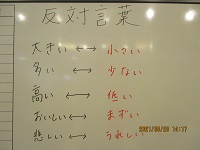 反対言葉
大きい ↔ 小さい
多い ↔ 少ない
高い ↔ 低い
おいしい ↔ まずい
悲しい ↔ うれしい